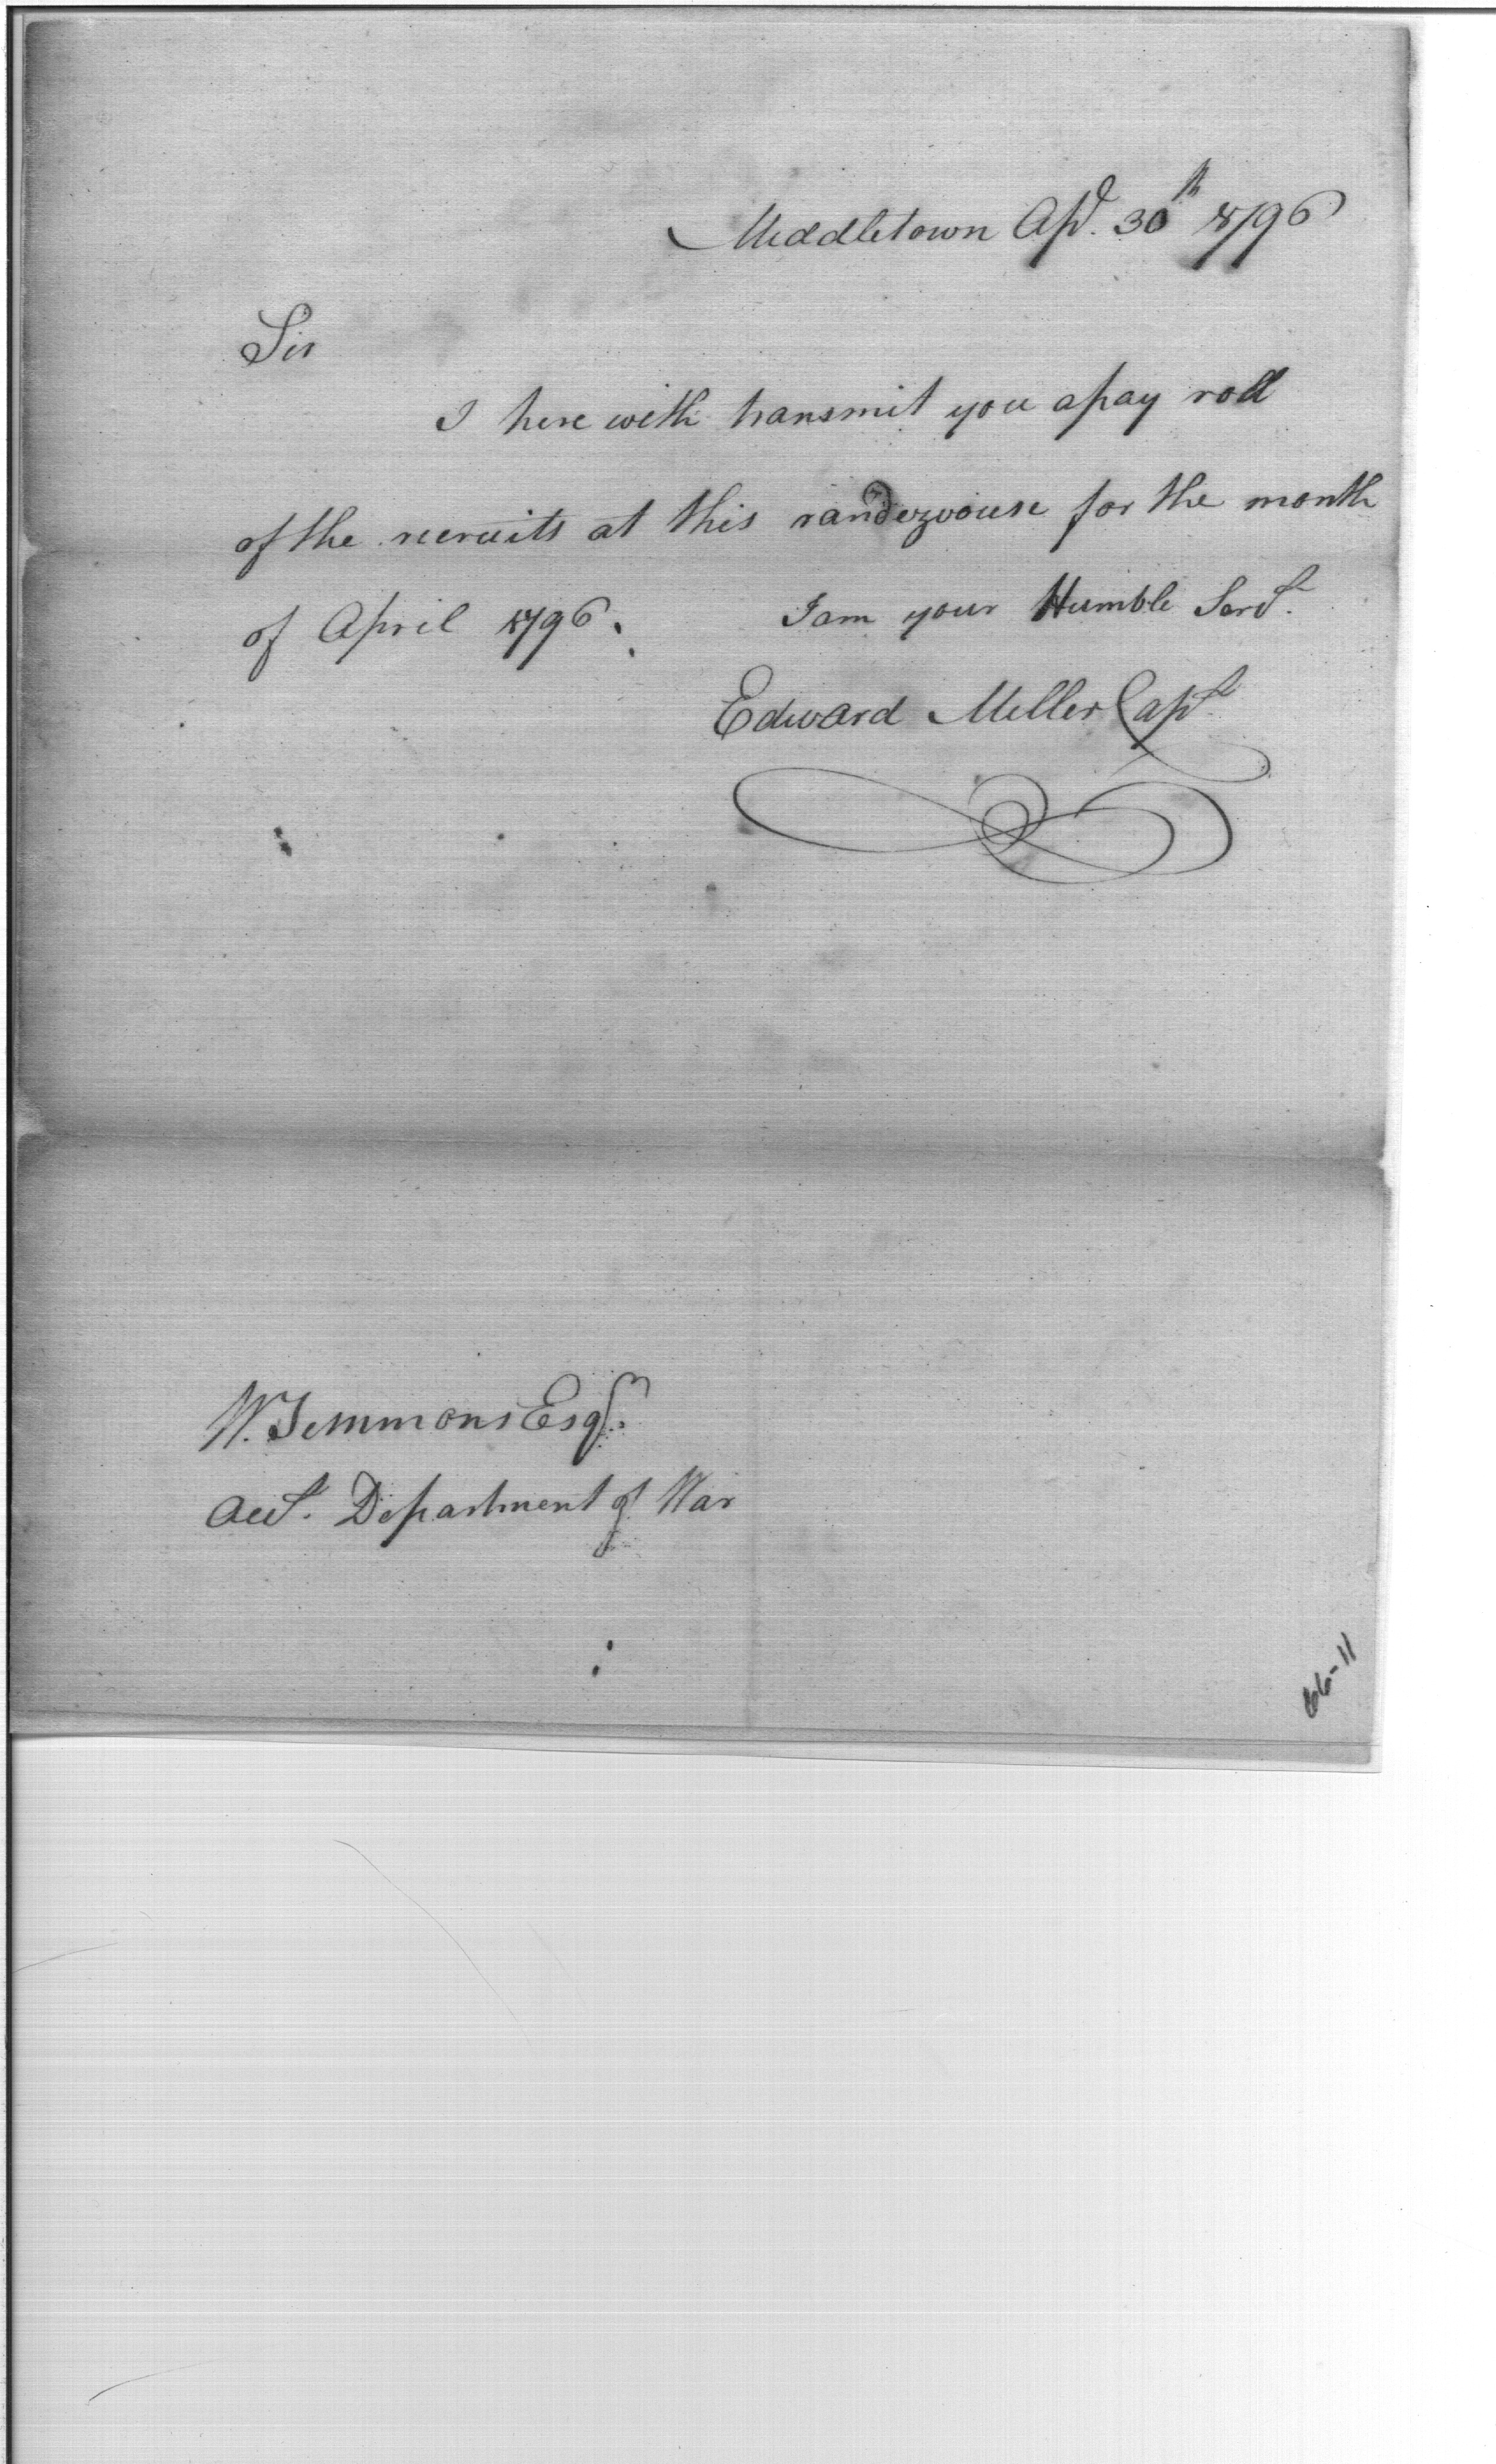 Middletown Apl. 30th 1796
Sir
I here with transmit you a pay roll
of the recruits at this randezvouse for the month
of April 1796. I am your Humble Servt.
Edward Miller Capt
W. Simmons Esqr.
Acct. Department of War
66-11